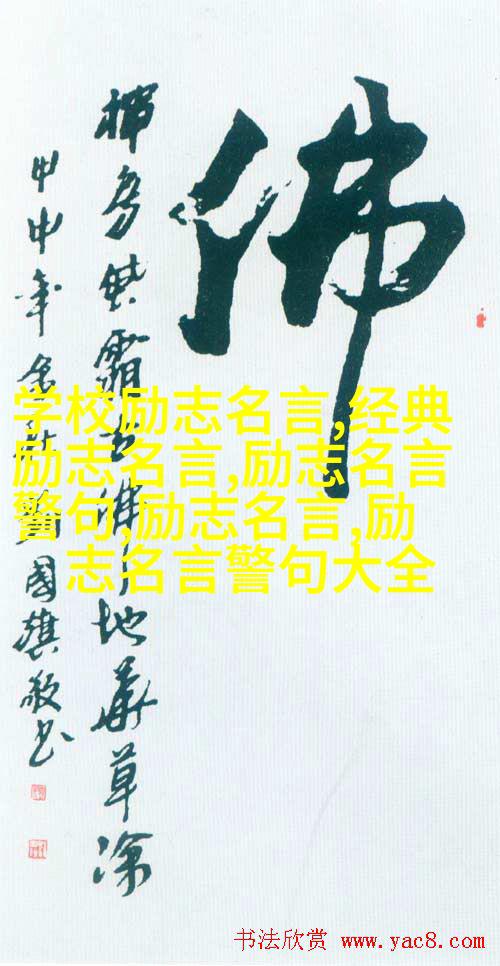 佛
霜古佛地草
甲申年國旗敬书
学校励志名言,经典
励志名言,励志名言
警句,励志名言,励
志名言警句大全
书法欣赏 www.yac8.com